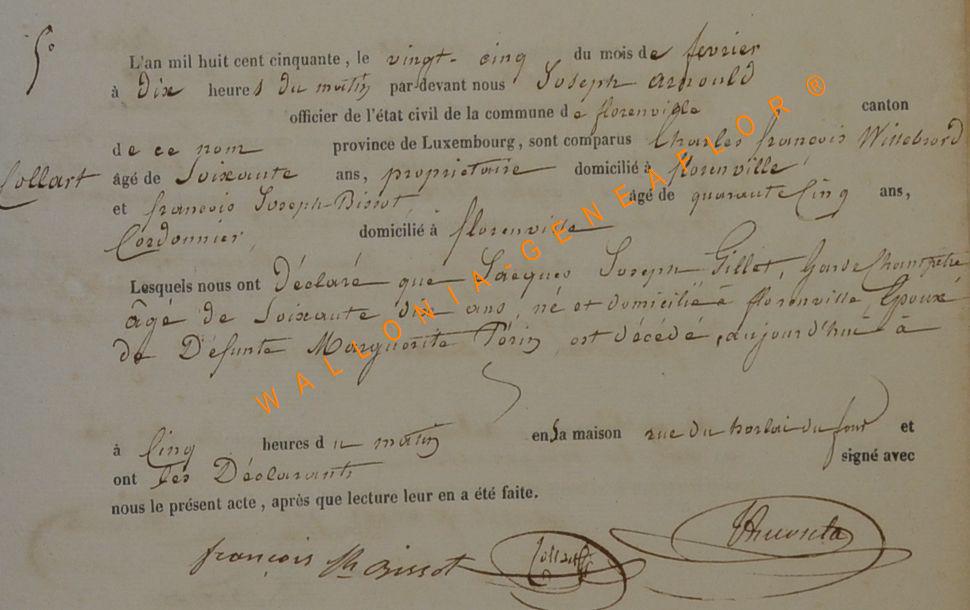 5°
L'an mil huit cent cinquante, le vingt-cinq du mois de fevrier
à dix heures du matin par-devant nous Joseph Arnould
officier de l'état civil de la commune de florenville canton
de ce nom province de Luxembourg, sont comparus Charles françois Willebrord
Collart âgé de Soixante ans, propriétaire domicilié à florenville
et françois Joseph Bissot âgé de quarante Cinq ans,
Cordonnier, domicilié à florenville
Lesquels nous ont Déclaré que Jacques Joseph Gillet, Garde Champêtre
âgé de Soixante dix ans, né et domicilié à florenville Epoux
de Défunte Marguerite est décédé, aujourd'hui à
à Cinq heures du matin en sa maison rue du du four et
ont les Déclarants signé avec
nous le présent acte, après que lecture leur en a été faite.
françois Bissot Collart
WALLONIA-GENEAFLOR®